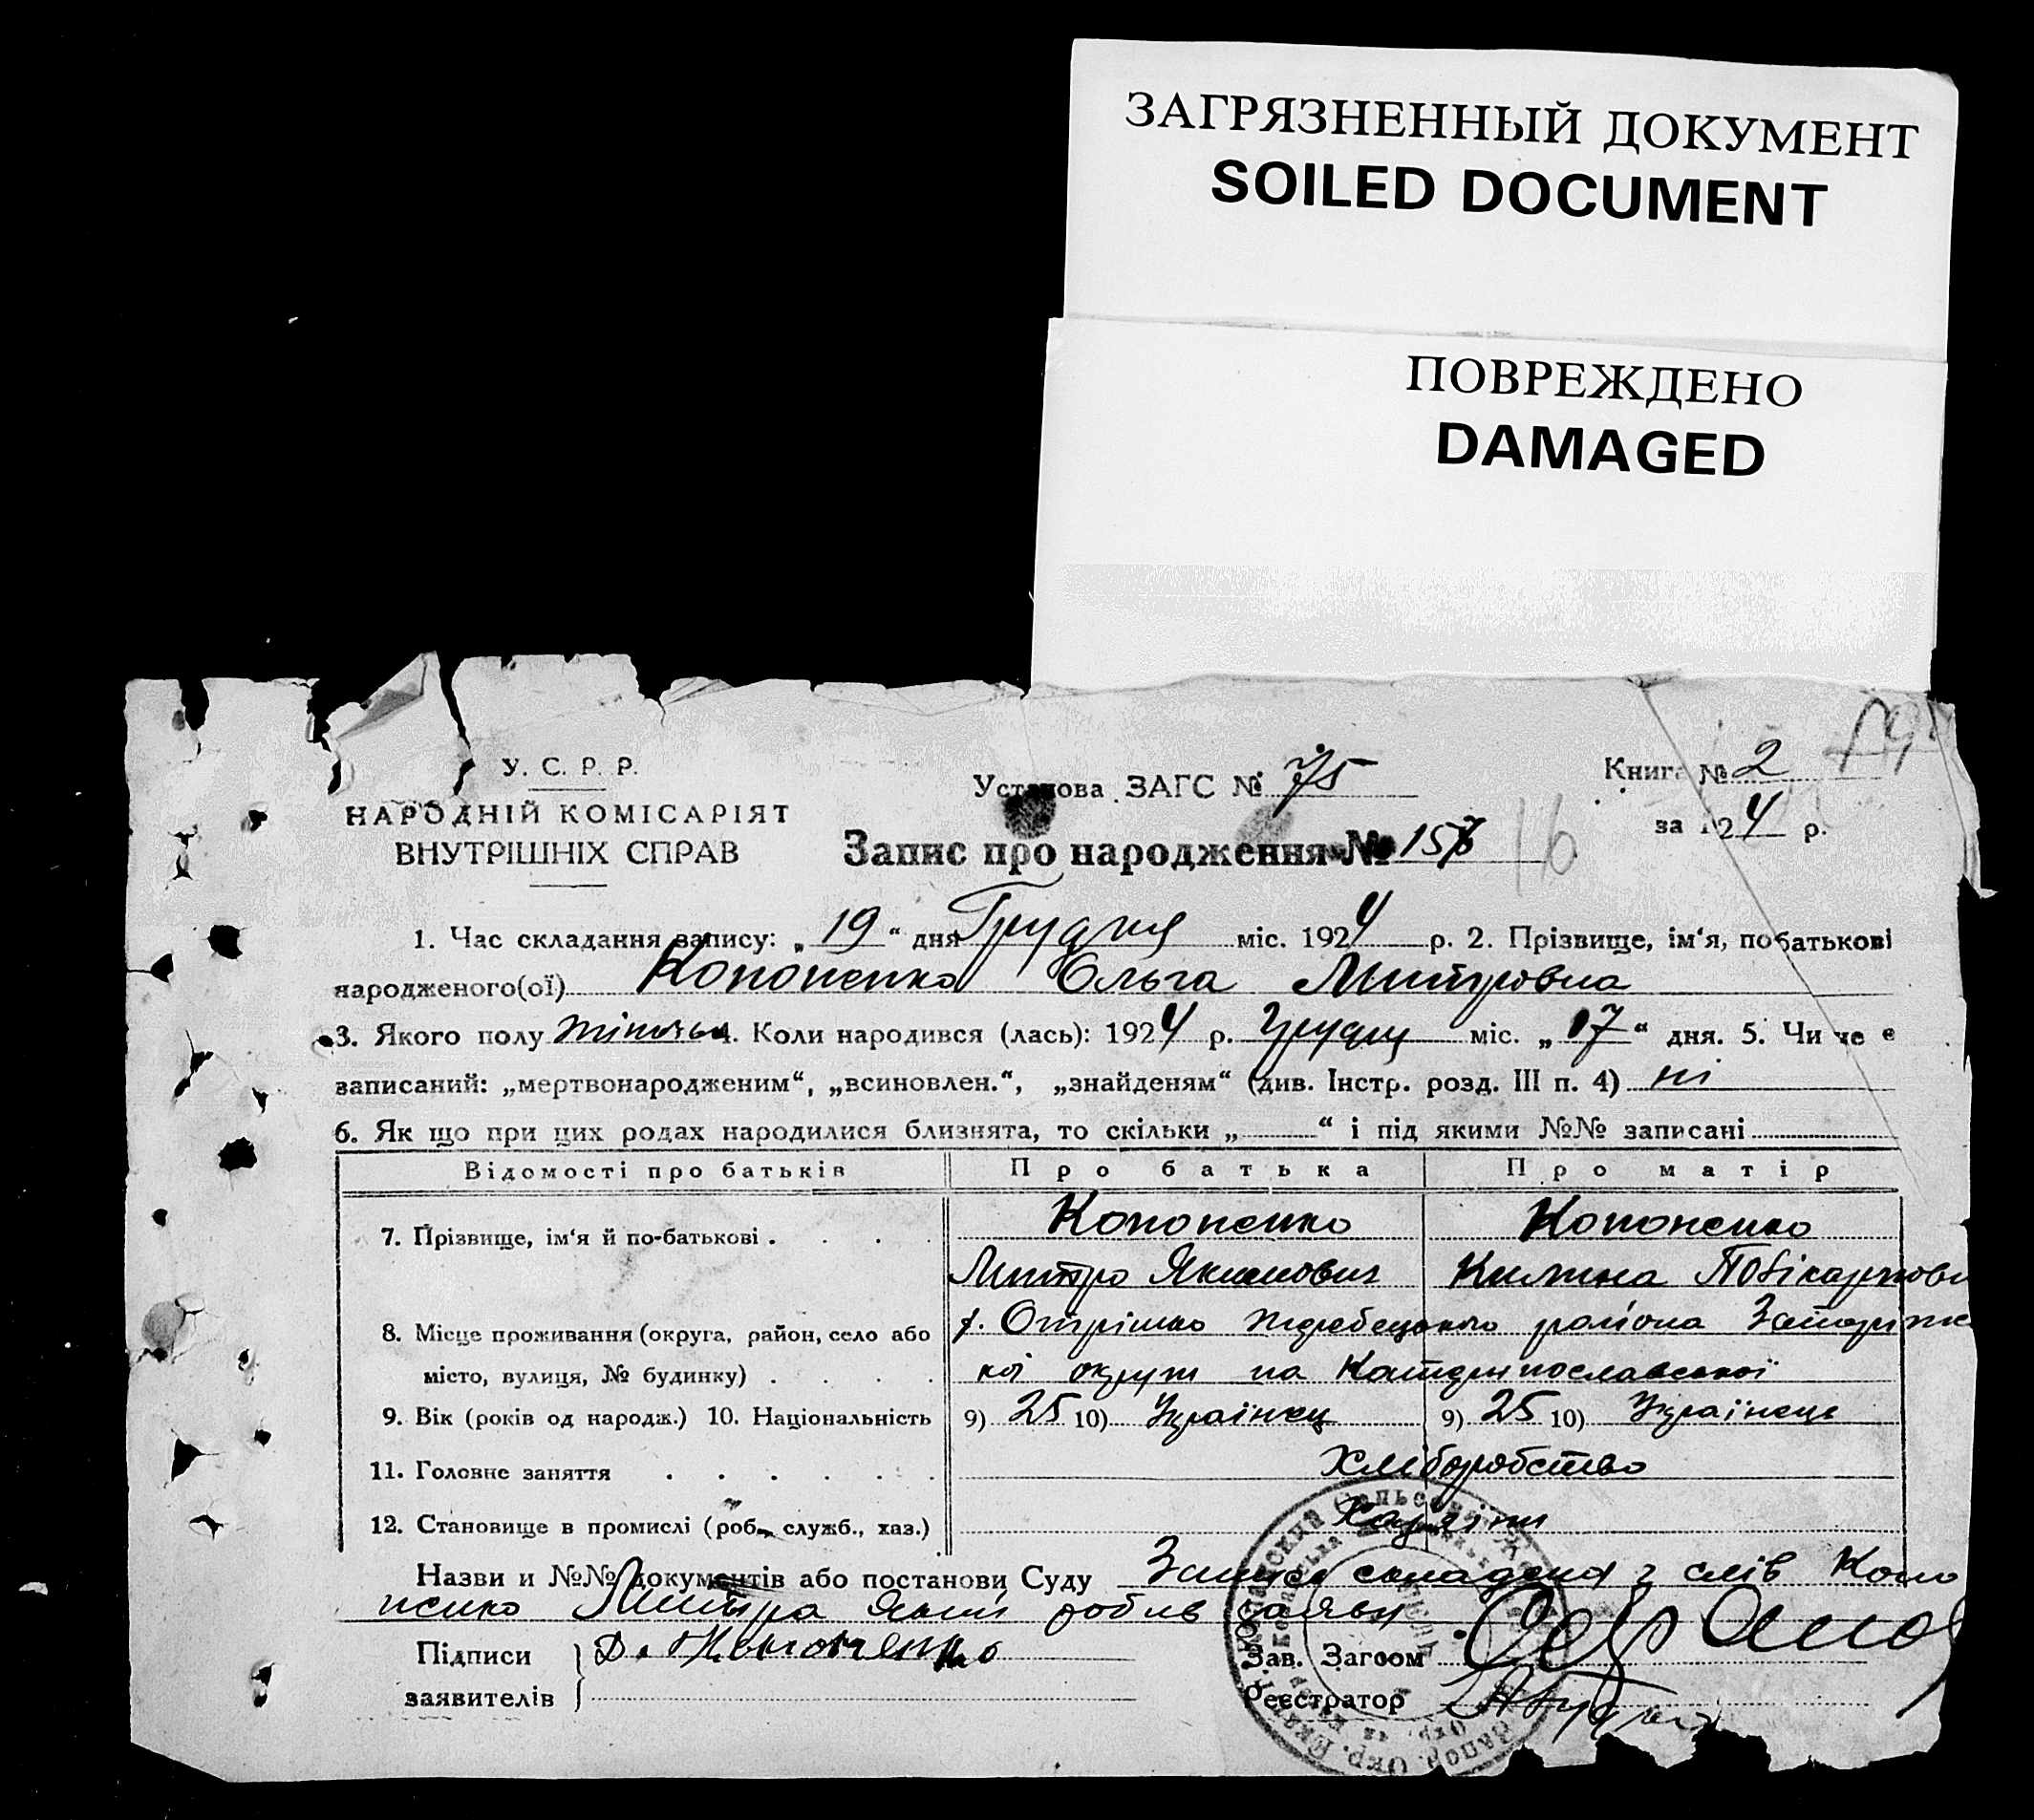 ЗАГРЯЗНЕННЫЙ ДОКУМЕНТ
SOILED DOCUMENT
ПОВРЕЖДЕНО
DAMAGED
У. С. Р. Р.
НАРОДНІЙ КОМІСАРІЯТ
ВНУТРІШНІХ СПРАВ
Установа ЗАГС № 75
Книга № 2
за 1924 р.
Запис про народження №
16
1. Час складання запису: „19“ дня Грудня міс. 1924 р. 2. Прізвище, ім‘я, побатькові
народженого(ої) Кононенко Ольга Митровна
3. Якого полу жіноча 4. Коли народився (лась): 1924 р. Грудня міс. „17“ дня. 5. Чи не є
записаний: „мертвонародженим“, „всиновлен.“, „знайденям“ (див. Інстр. розд. III п. 4) ні
6. Як що при цих родах народилися близнята, то скільки „ “ і під якими №№ записані
Відомості про батьків Про батька Про матір
7. Прізвище, ім‘я й по-батькові . . . . Кононенко Кононенко
Митро Якимович Килина
8. Місце проживання (округа, район, село або Жеребецького района
місто, вулиця, № будинку) . . . . кої округи на Катеринославської
9. Вік (років од народж.) 10. Національність 9) 25 10) Українец 9) 25 10) Українець
11. Головне заняття . . . . . . Хліборобство
12. Становище в промислі (роб., служб., хаз.) Хазяїни
Назви и №№ документів або постанови Суду Запис складена з слів Коно
ненко Митра який робив заяву
Підписи заявителів Д. Кононенко
Зав. Загсом
Реєстратор